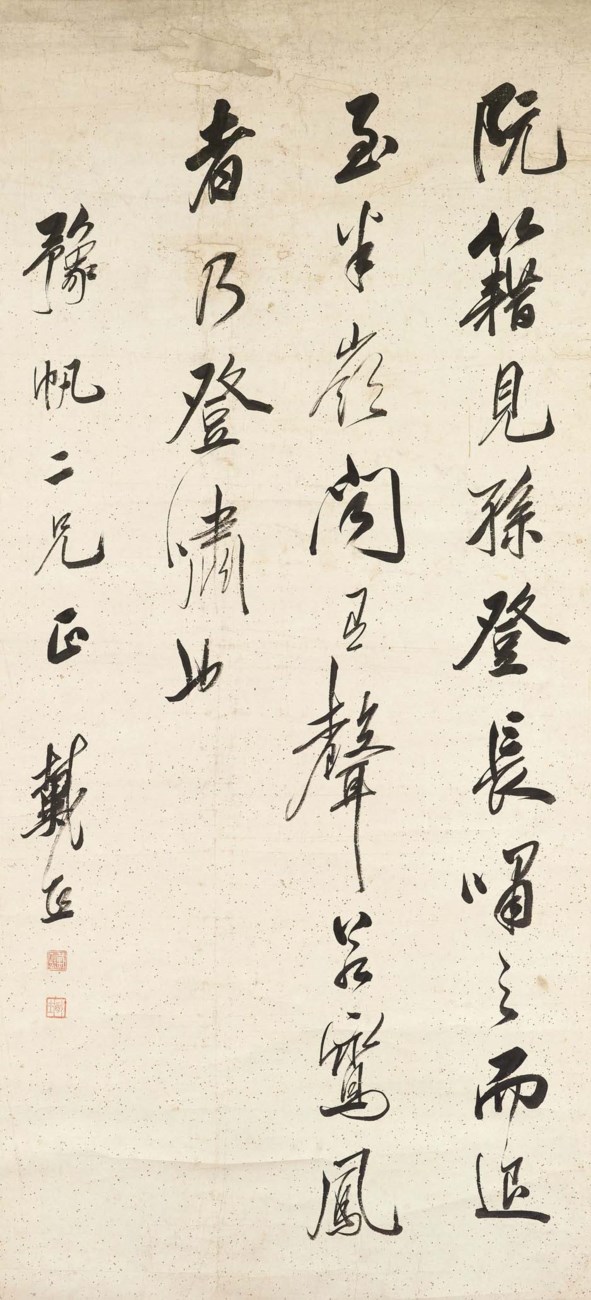 阮籍見孫登長嘯之而退
至半嶺聞有聲若鸞鳳
者乃登嘯也
豫帆二兄正 戴熙